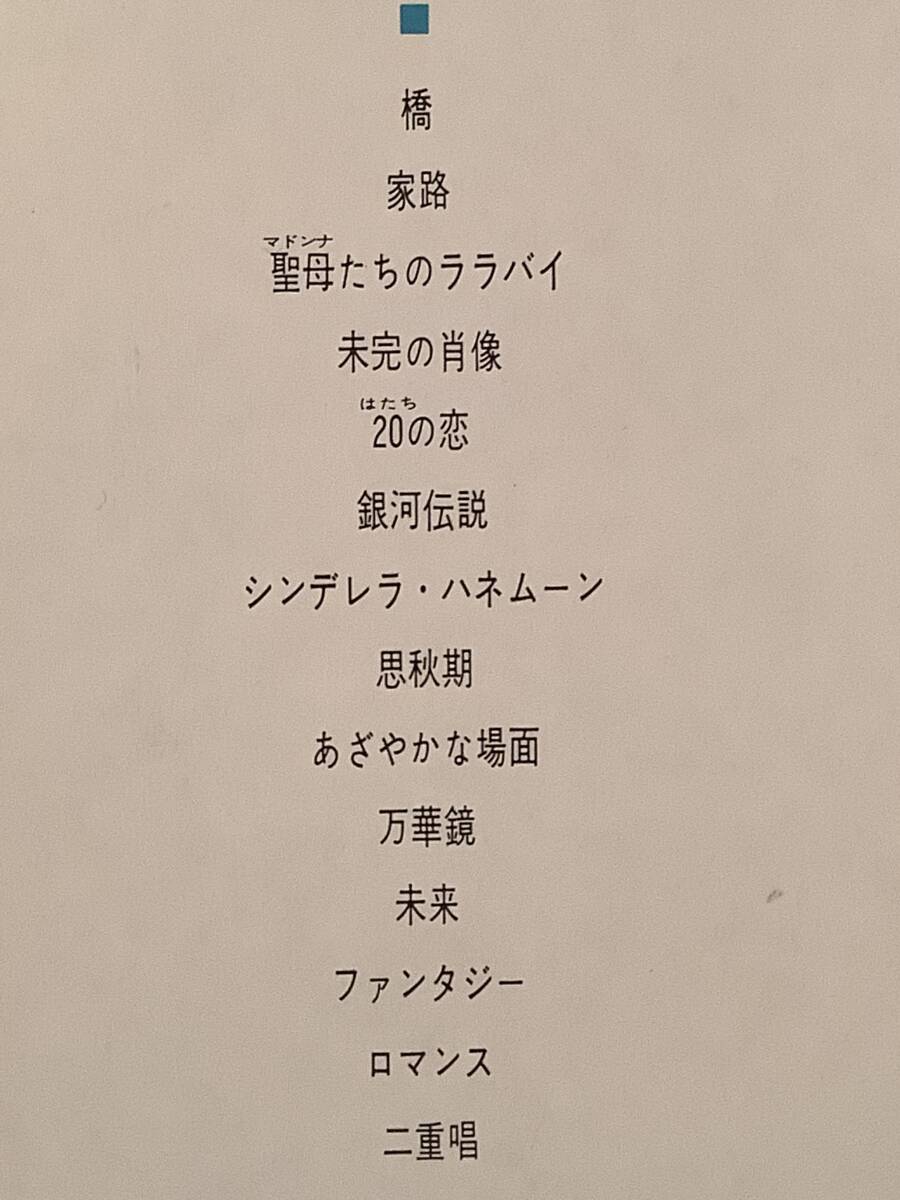 橋
家路
マドンナ
聖母たちのララバイ
未完の肖像
はたち
20の恋
銀河伝説
シンデレラ・ハネムーン
思秋期
あざやかな場面
万華鏡
未来
ファンタジー
ロマンス
二重唱